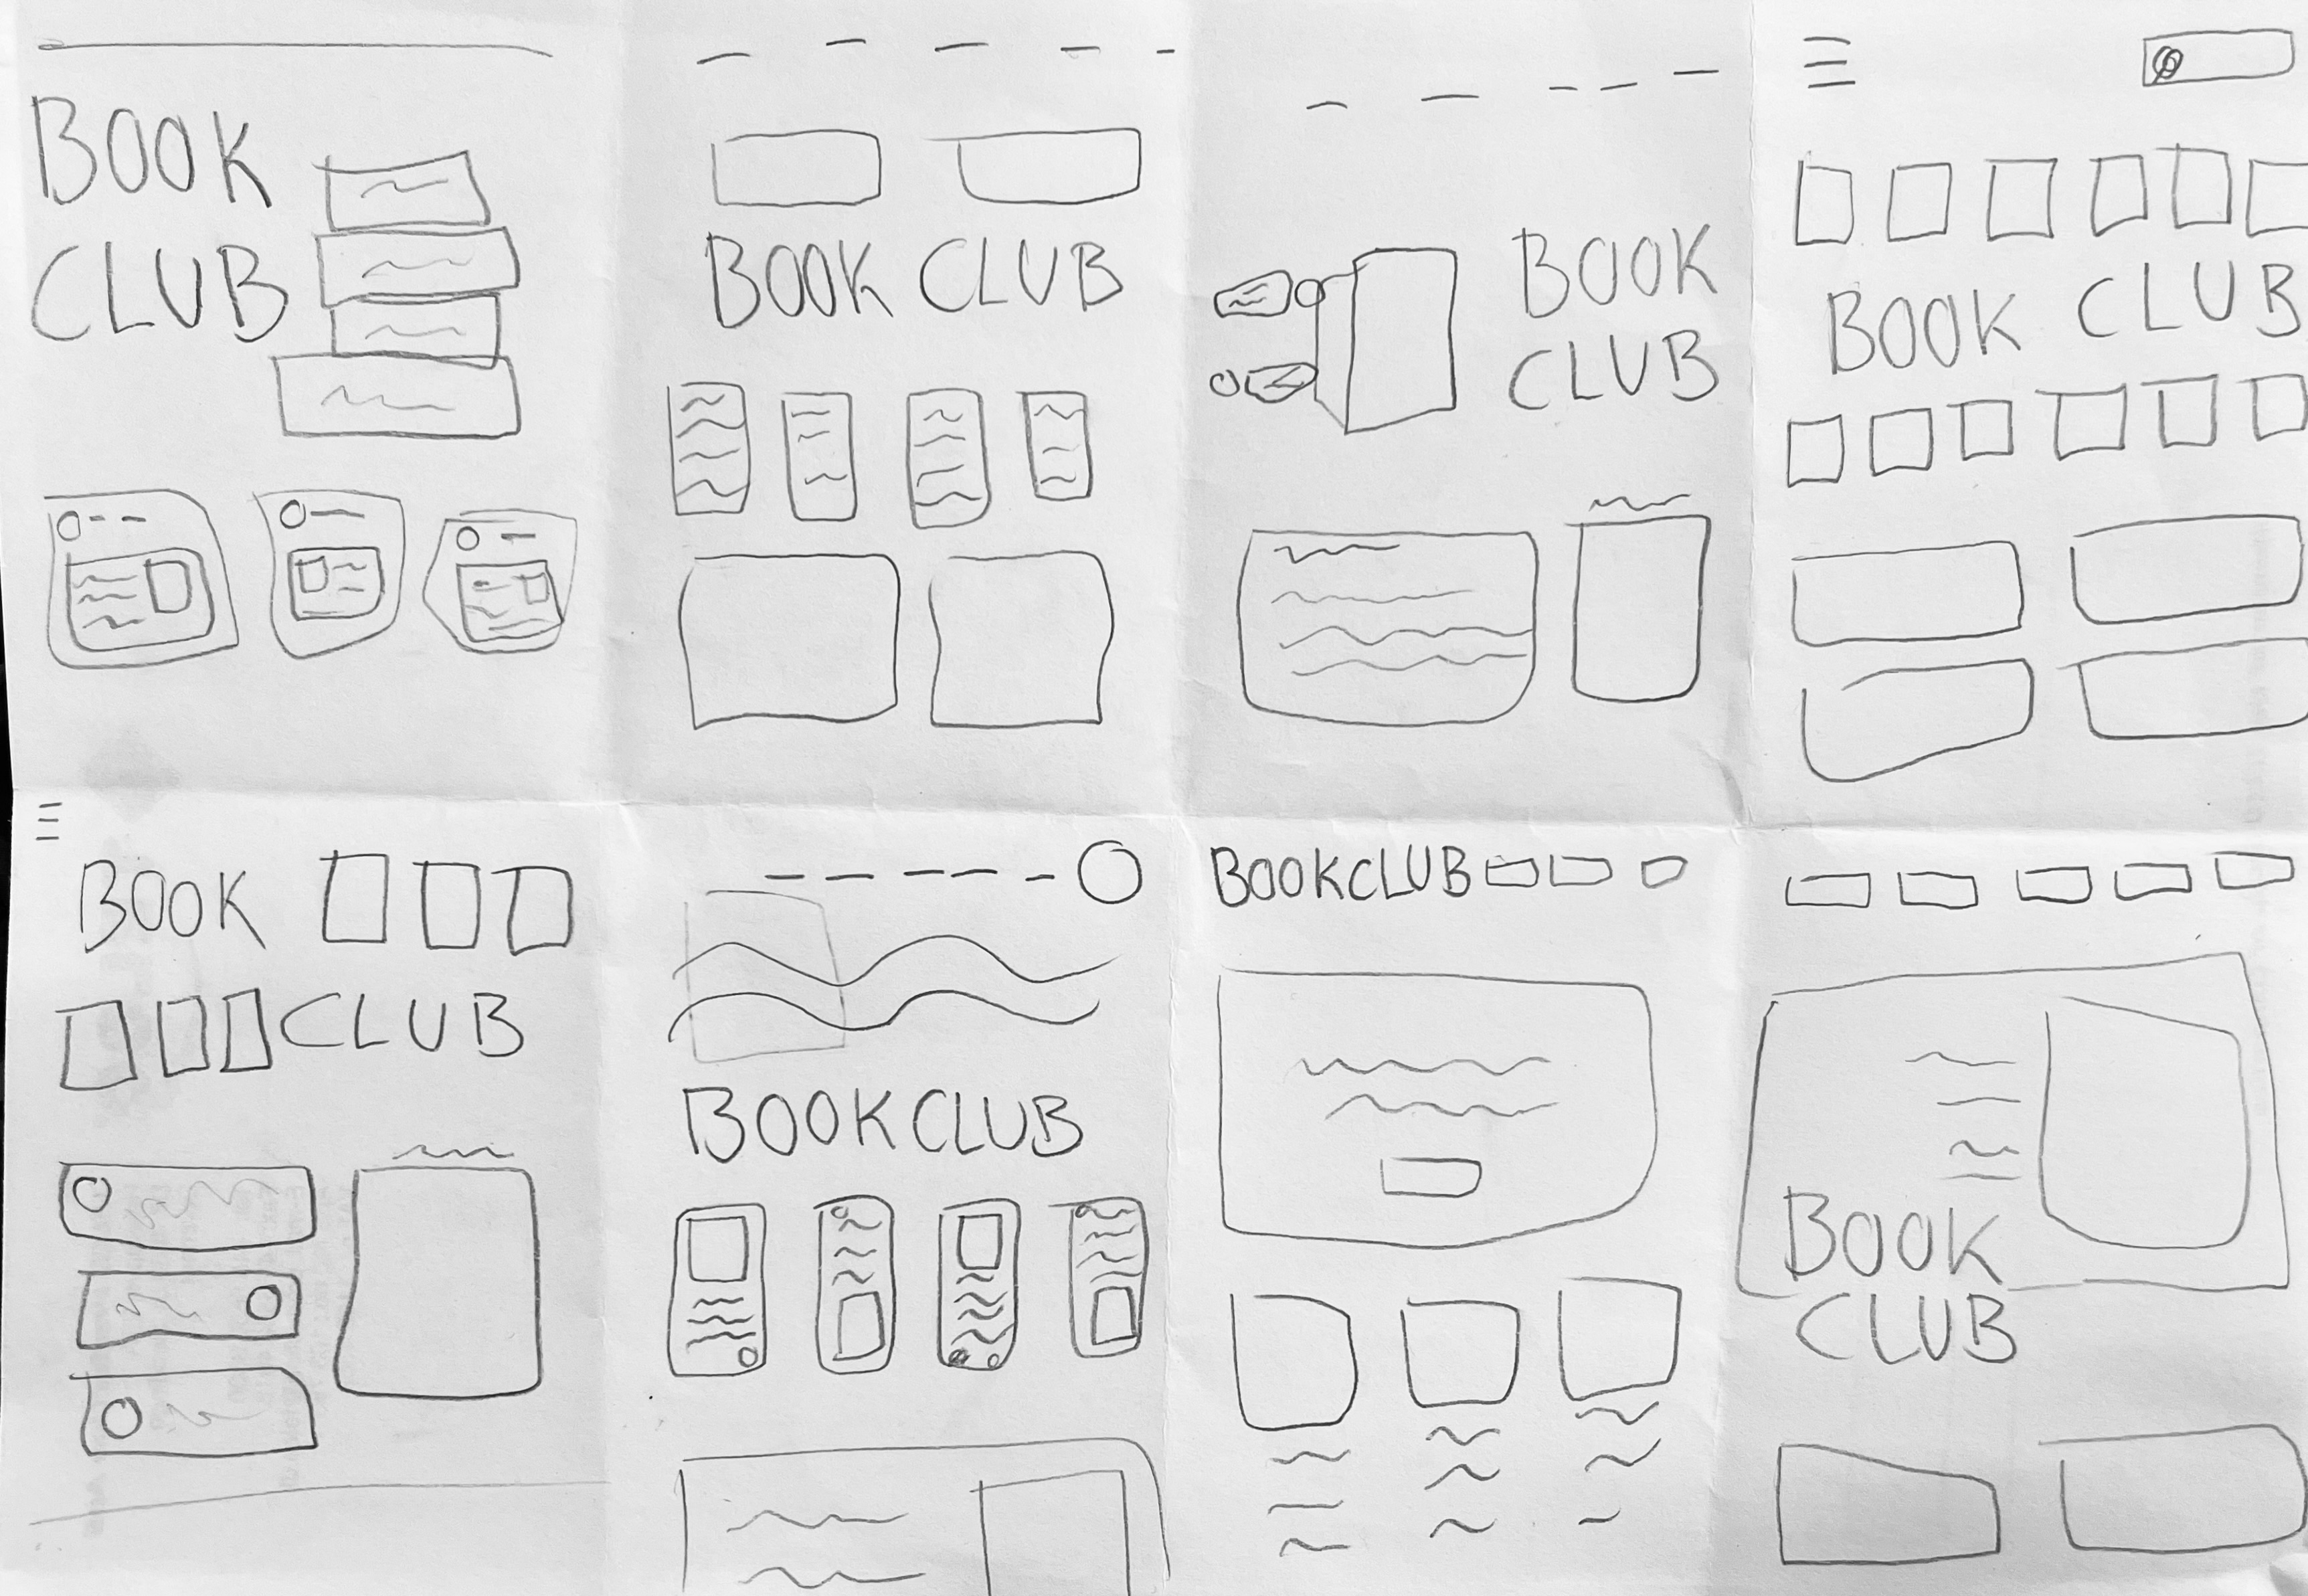 BOOK
CLUB
BOOK CLUB
BOOK
CLUB
BOOK CLUB
BOOK
CLUB
BOOKCLUB
BOOKCLUB
BOOK
CLUB